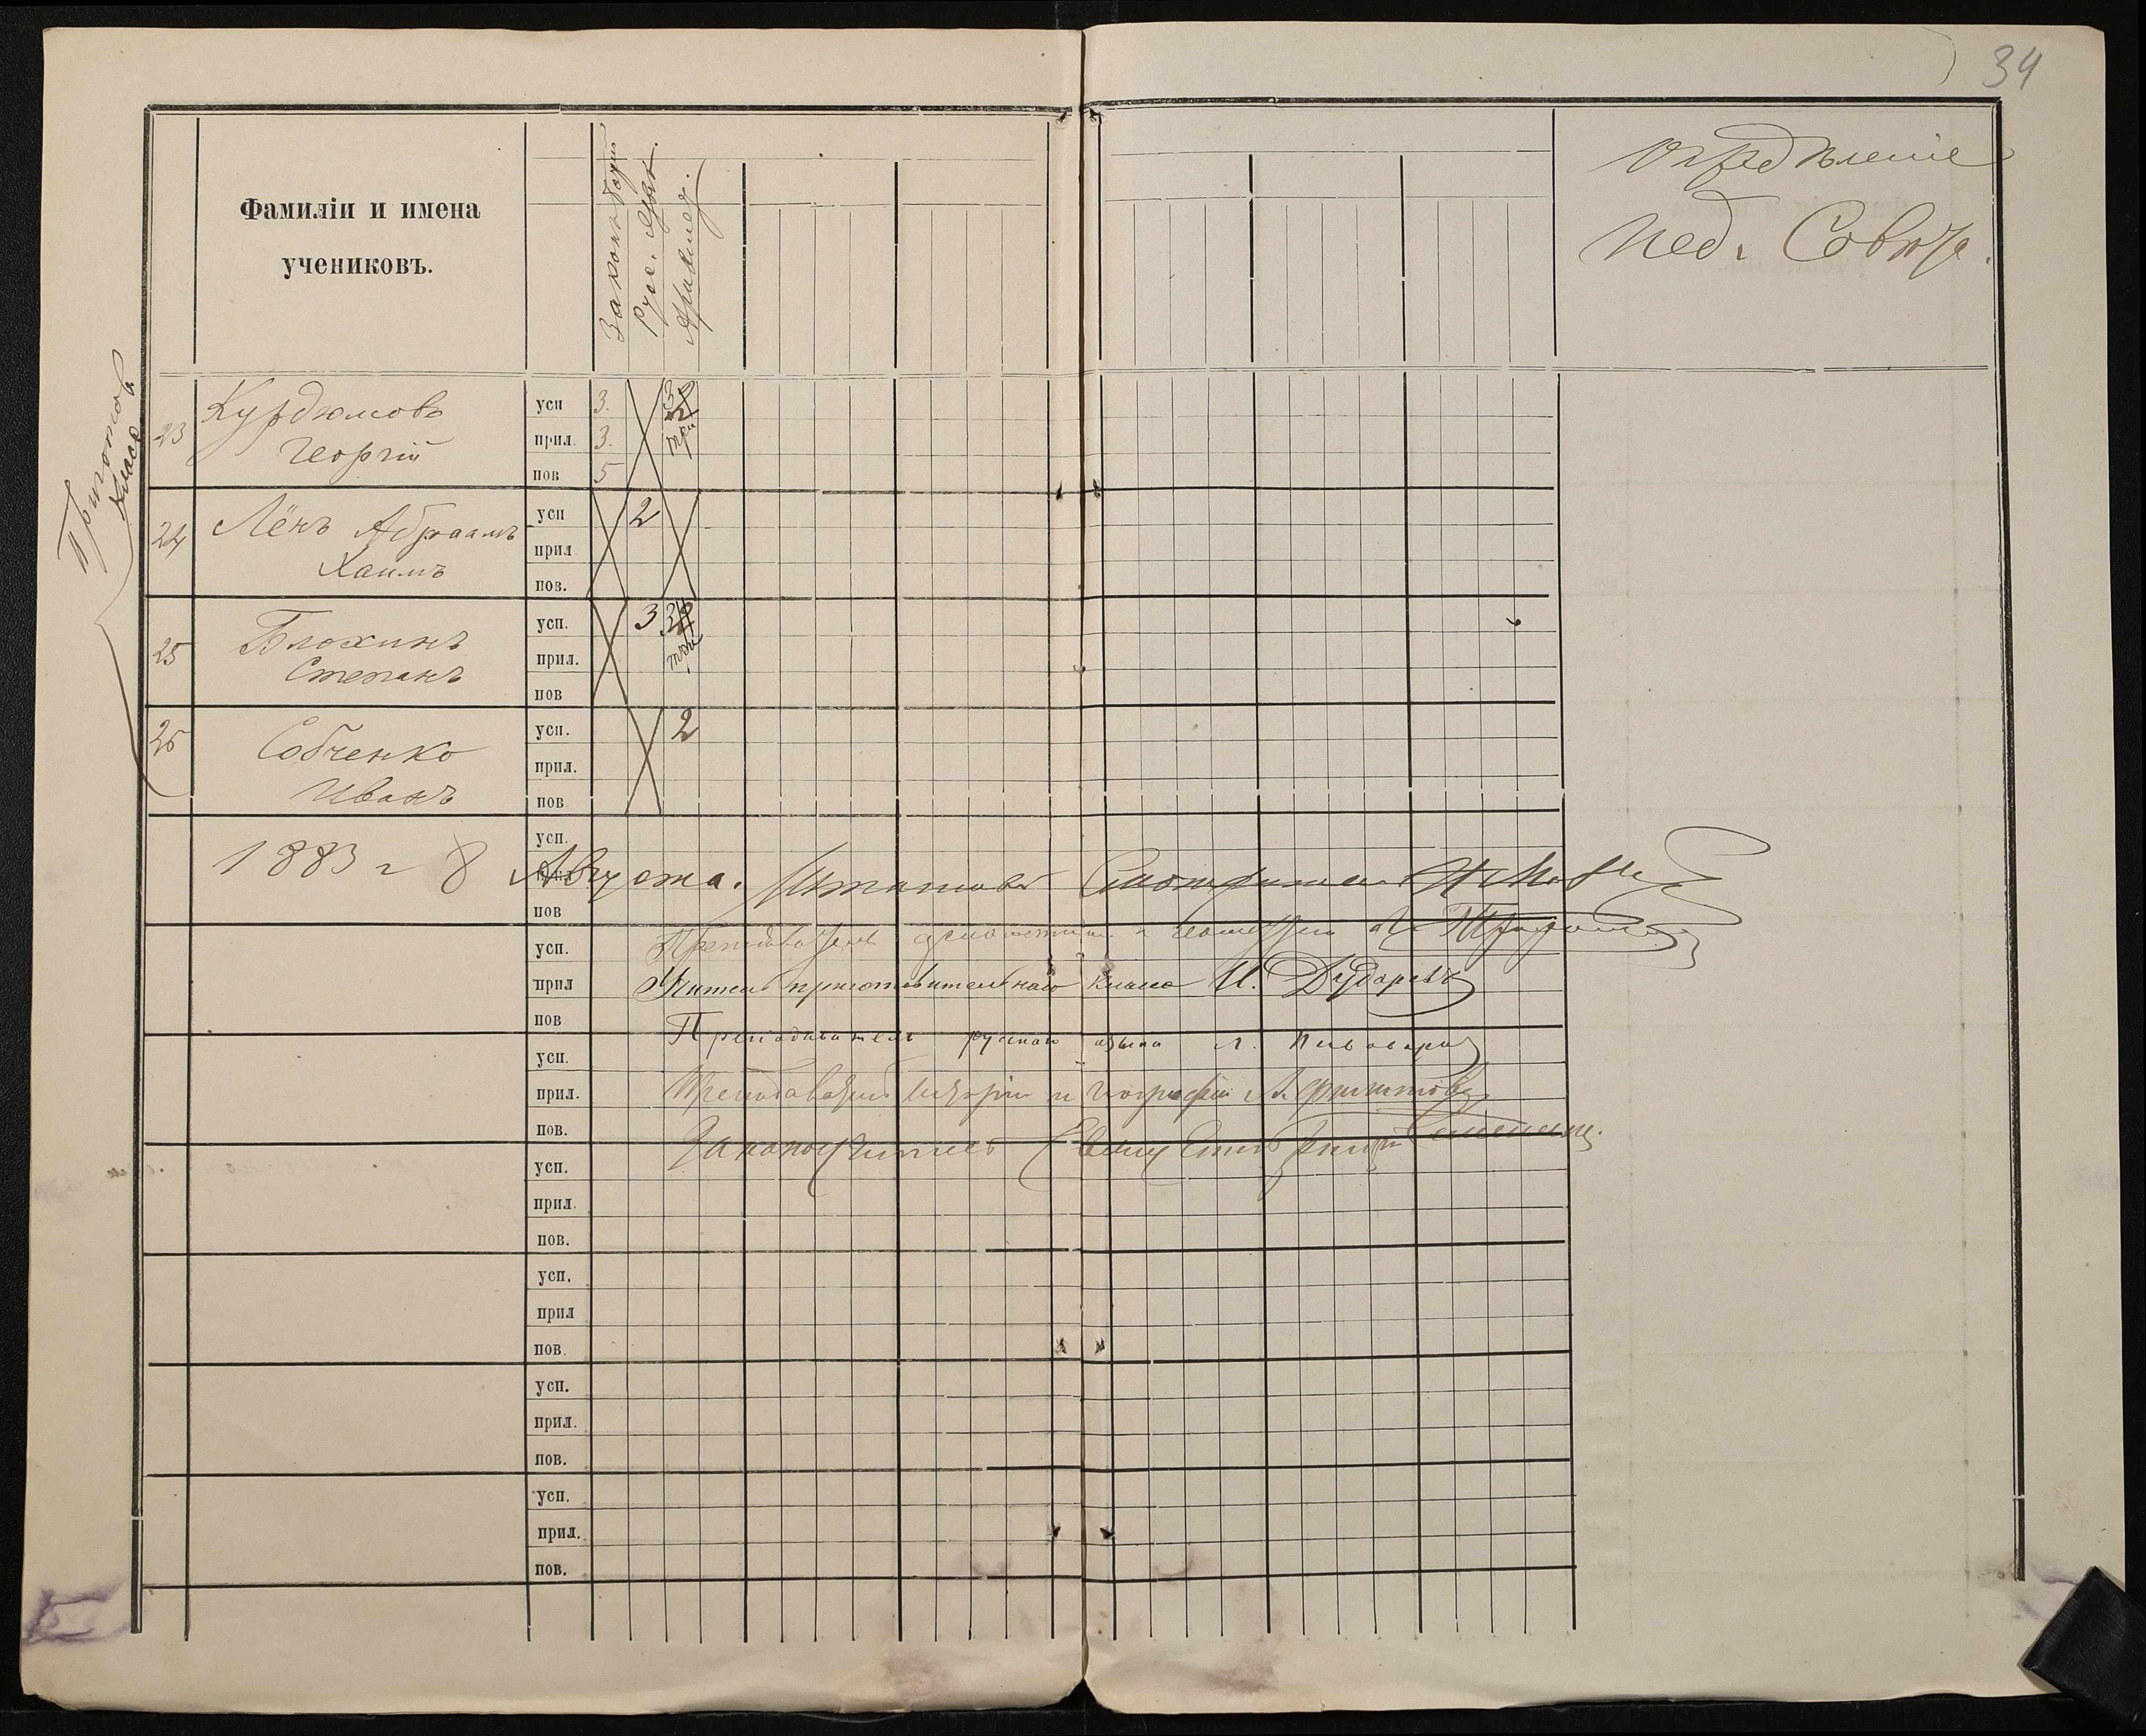 34
Фамиліи и имена
учениковъ.
Законъ божій
Русс. Язык.
Ариѳмет.
Опредѣленіе
Пед. Совѣта.
Приготов.
классъ
23
Курдюмовъ
Георгій
усп 3. 3
прил. 3. три
пов 5
24
Лёнъ Абраамъ
Хаимъ
усп 2
прил
пов.
25
Блохинъ
Степанъ
усп. 3 3
прил. три
пов
26
Собченко
Иванъ
усп. 2
прил.
пов
усп.
1883 г 8 Августа. Штатный Смотритель
пов
усп.
Преподаватель ариѳметики и геометріи
прил
Учитель приготовительнаго класса И. Дударевъ
пов
Преподаватель русскаго языка Л. Пивоваровъ
усп.
прил.
Преподаватель исторіи и географіи А. Филиповъ
пов.
Законоучитель
усп.
прил.
пов.
усп.
прил
пов.
усп.
прил.
пов.
усп.
прил.
пов.